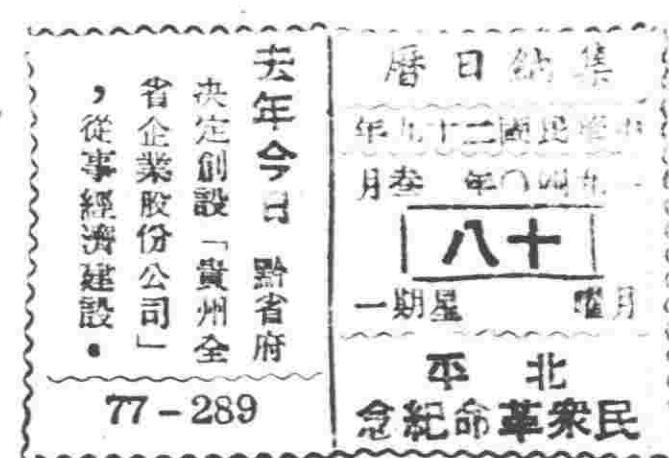 集納日曆
中華民國二十九年
一九四〇年 叁月
十八
月曜 星期一
北平
民衆革命紀念
去年今日 黔省府
決定創設「貴州全
省企業股份公司」
，從事經濟建設。
77-289